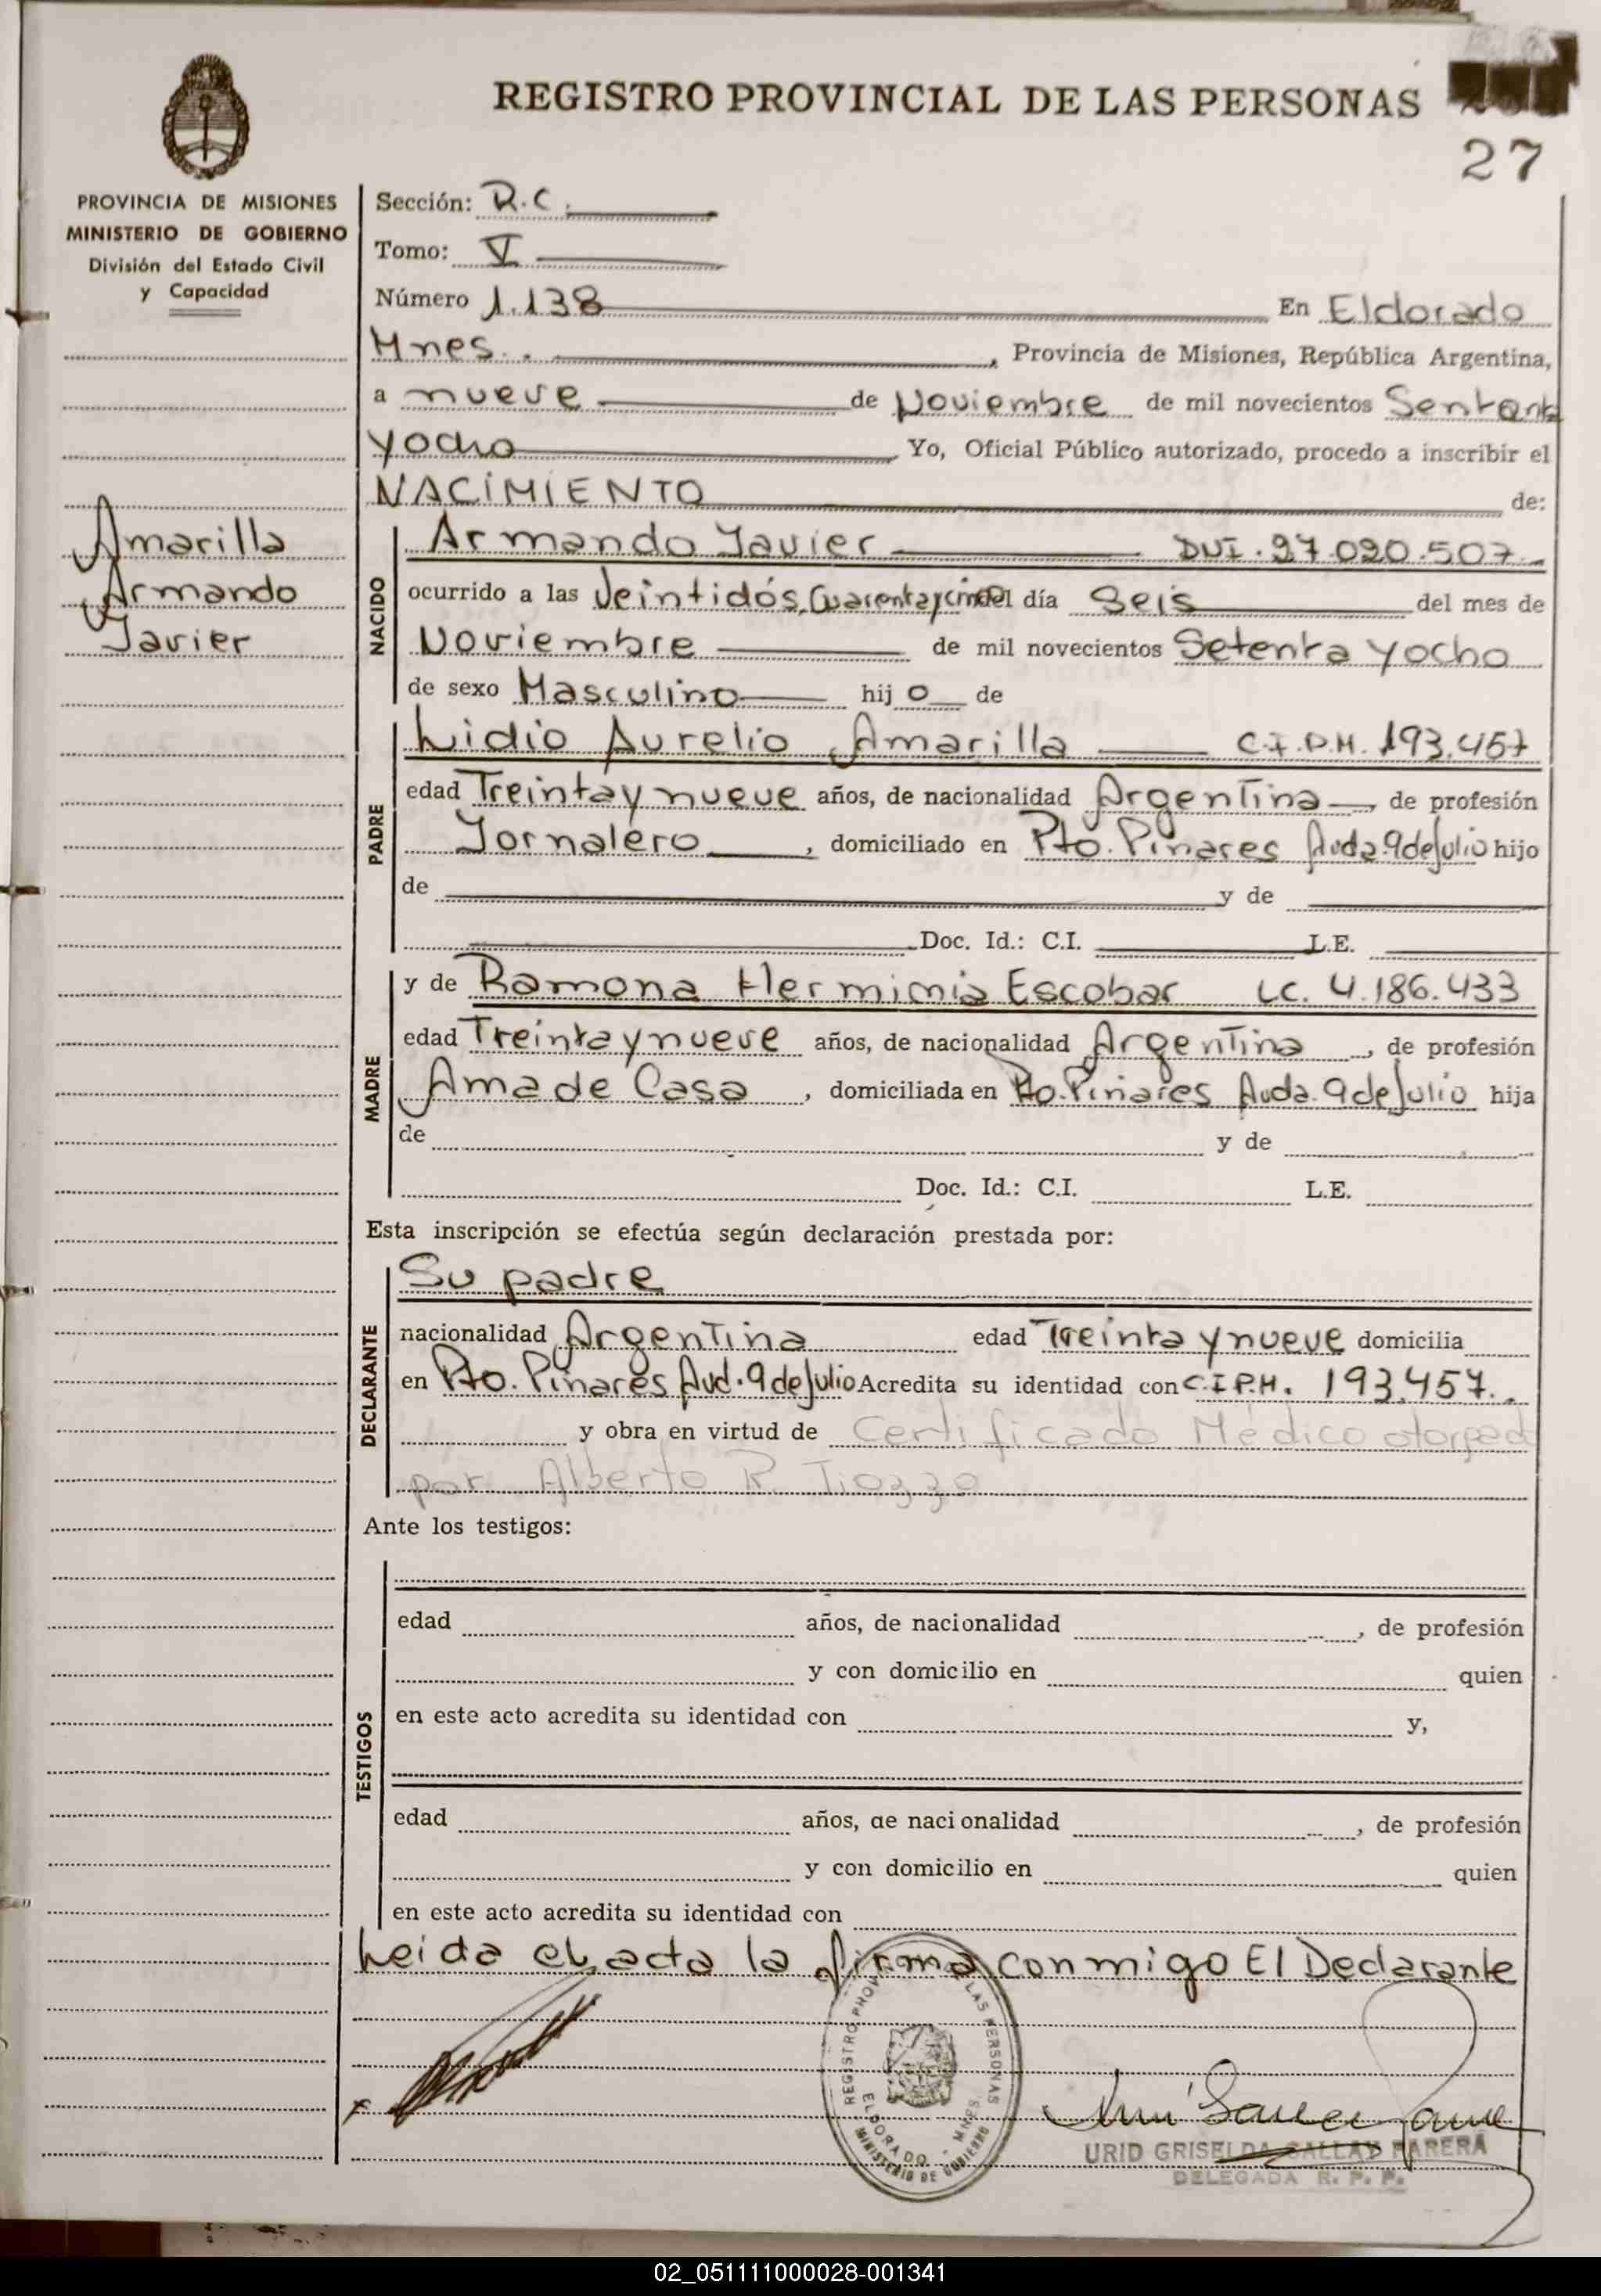 REGISTRO PROVINCIAL DE LAS PERSONAS
27
PROVINCIA DE MISIONES
MINISTERIO DE GOBIERNO
División del Estado Civil
y Capacidad
Amarilla
Armando
Javier
Sección: R.C.
Tomo: V
Número 1.138 En Eldorado
Mnes. , Provincia de Misiones, República Argentina,
a nueve de Noviembre de mil novecientos Sententa
y ocho Yo, Oficial Público autorizado, procedo a inscribir el
NACIMIENTO de:
NACIDO
Armando Javier DNI. 27.020.507
ocurrido a las Veintidós, Cuarenta y cinco del día Seis del mes de
Noviembre de mil novecientos Setenta y ocho
de sexo Masculino hij o de
PADRE
Lidio Aurelio Amarilla C.I.P.M. 193.457
edad Treinta y nueve años, de nacionalidad Argentina, de profesión
Jornalero, domiciliado en Pto. Pinares Avda. 9 de Julio hijo
de y de
Doc. Id.: C.I. L.E.
MADRE
y de Ramona Herminia Escobar LC. 4.186.433
edad Treinta y nueve años, de nacionalidad Argentina, de profesión
Ama de Casa, domiciliada en Pto. Pinares Avda. 9 de Julio hija
de y de
Doc. Id.: C.I. L.E.
Esta inscripción se efectúa según declaración prestada por:
DECLARANTE
Su padre
nacionalidad Argentina edad Treinta y nueve domicilia
en Pto. Pinares Avd. 9 de Julio Acredita su identidad con C.I.P.M. 193.457.
y obra en virtud de Certificado Médico otorgado
por Alberto R. Tiozzo
Ante los testigos:
TESTIGOS
edad años, de nacionalidad , de profesión
y con domicilio en quien
en este acto acredita su identidad con y,
edad años, de nacionalidad , de profesión
y con domicilio en quien
en este acto acredita su identidad con
Leida el acta la firma conmigo El Declarante
REGISTRO PROV LAS PERSONAS
ELDORADO - MNES.
MINISTERIO DE GOBIERNO
URID GRISELDA SALLAY PARERA
DELEGADA R. P. P.
02_051111000028-001341